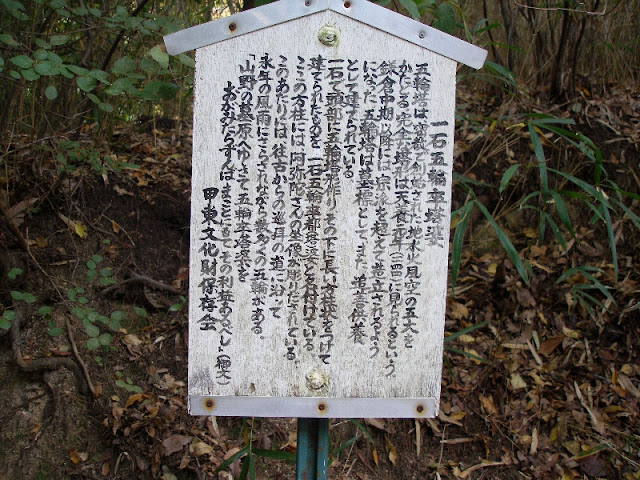 一石五輪卒塔婆
五輪塔は、密教で創始された地水火風空の五大を
かたどる完全塔形は天養元年(一一四四)に見られるという。
鎌倉中期以降には宗派を超えて造立されるよう
になった。五輪塔は墓標として、また、追善供養
として建てられている。
一石で頭部に五輪塔を作り、その下に長い方柱状をつけて
建てられたものを、一石五輪卒都婆と名付けている。
ここの方柱には、阿弥陀さんの坐像が彫りだされている。
このあたりは、往古からの巡礼の道に沿って
永年の風雨にさらされながら数多くの五輪がある。
「山野の墓原へゆきて五輪卒塔婆を
おがみたらずんば、まことにもてその利益あるべし」(極文)
甲東文化財保存会